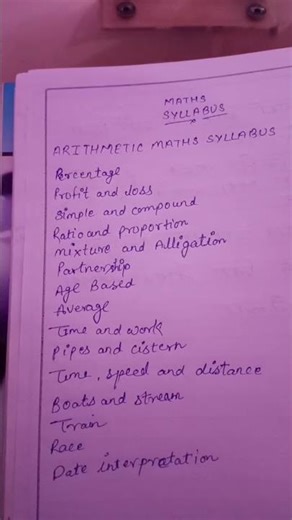 MATHS
SYLLABUS
ARITHMETIC MATHS SYLLABUS
Percentage
Profit and loss
Simple and compound
Ratio and proportion
Mixture and Alligation
Partnership
Age Based
Average
Time and work
Pipes and cistern
Time, speed and distance
Boats and stream
Train
Race
Date interpretation